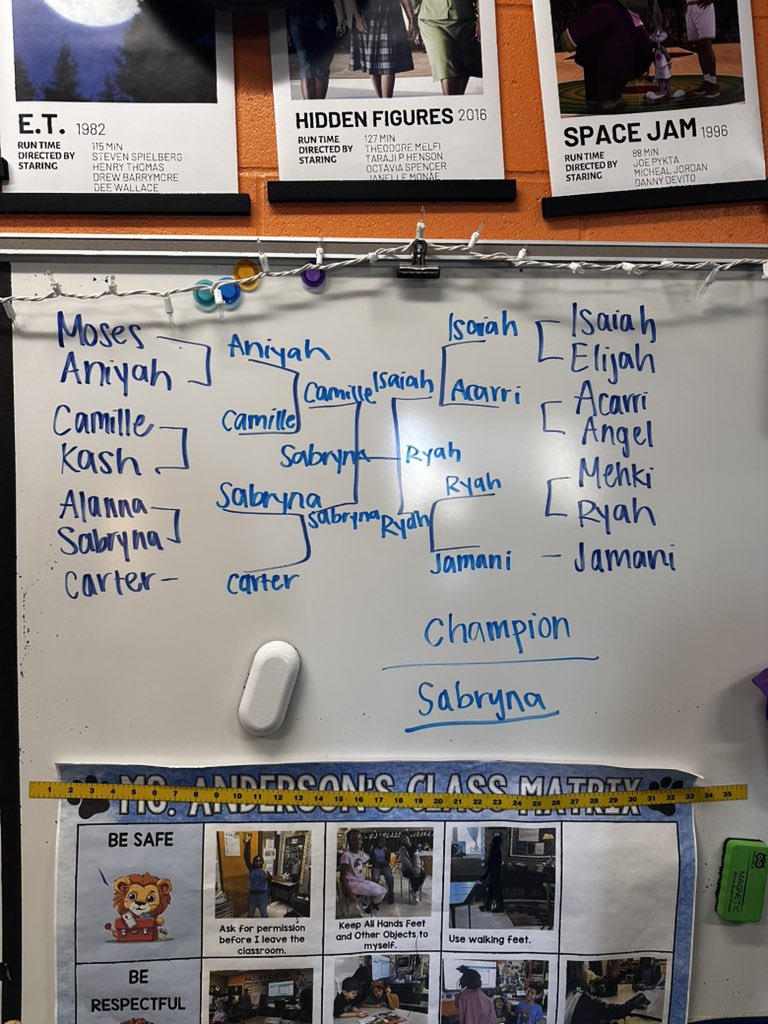 E.T. 1982
RUN TIME 115 MIN
DIRECTED BY STEVEN SPIELBERG
STARING HENRY THOMAS
DREW BARRYMORE
DEE WALLACE
HIDDEN FIGURES 2016
RUN TIME 127 MIN
DIRECTED BY THEODORE MELFI
STARING TARAJI P HENSON
OCTAVIA SPENCER
JANELLE MONAE
SPACE JAM 1996
RUN TIME 88 MIN
DIRECTED BY JOE PYKTA
STARING MICHEAL JORDAN
DANNY DEVITO
Moses
Aniyah
Camille
Kash
Alanna
Sabryna
Carter
Aniyah
Camille
Sabryna
Carter
Camille
Sabryna
Sabryna
Isaiah
Ryah
Ryah
Isaiah
Acarri
Ryah
Jamani
Isaiah
Elijah
Acarri
Angel
Mehki
Ryah
Jamani
Champion
Sabryna
MS. ANDERSON'S CLASS MATRIX
1 2 3 4 5 6 7 8 9 10 11 12 13 14 15 16 17 18 19 20 21 22 23 24 25 26 27 28 29 30 31 32 33 34 35
BE SAFE
Ask for permission
before I leave the
classroom.
Keep All Hands Feet
and Other Objects to
myself.
Use walking feet.
BE
RESPECTFUL
MAGNETIC